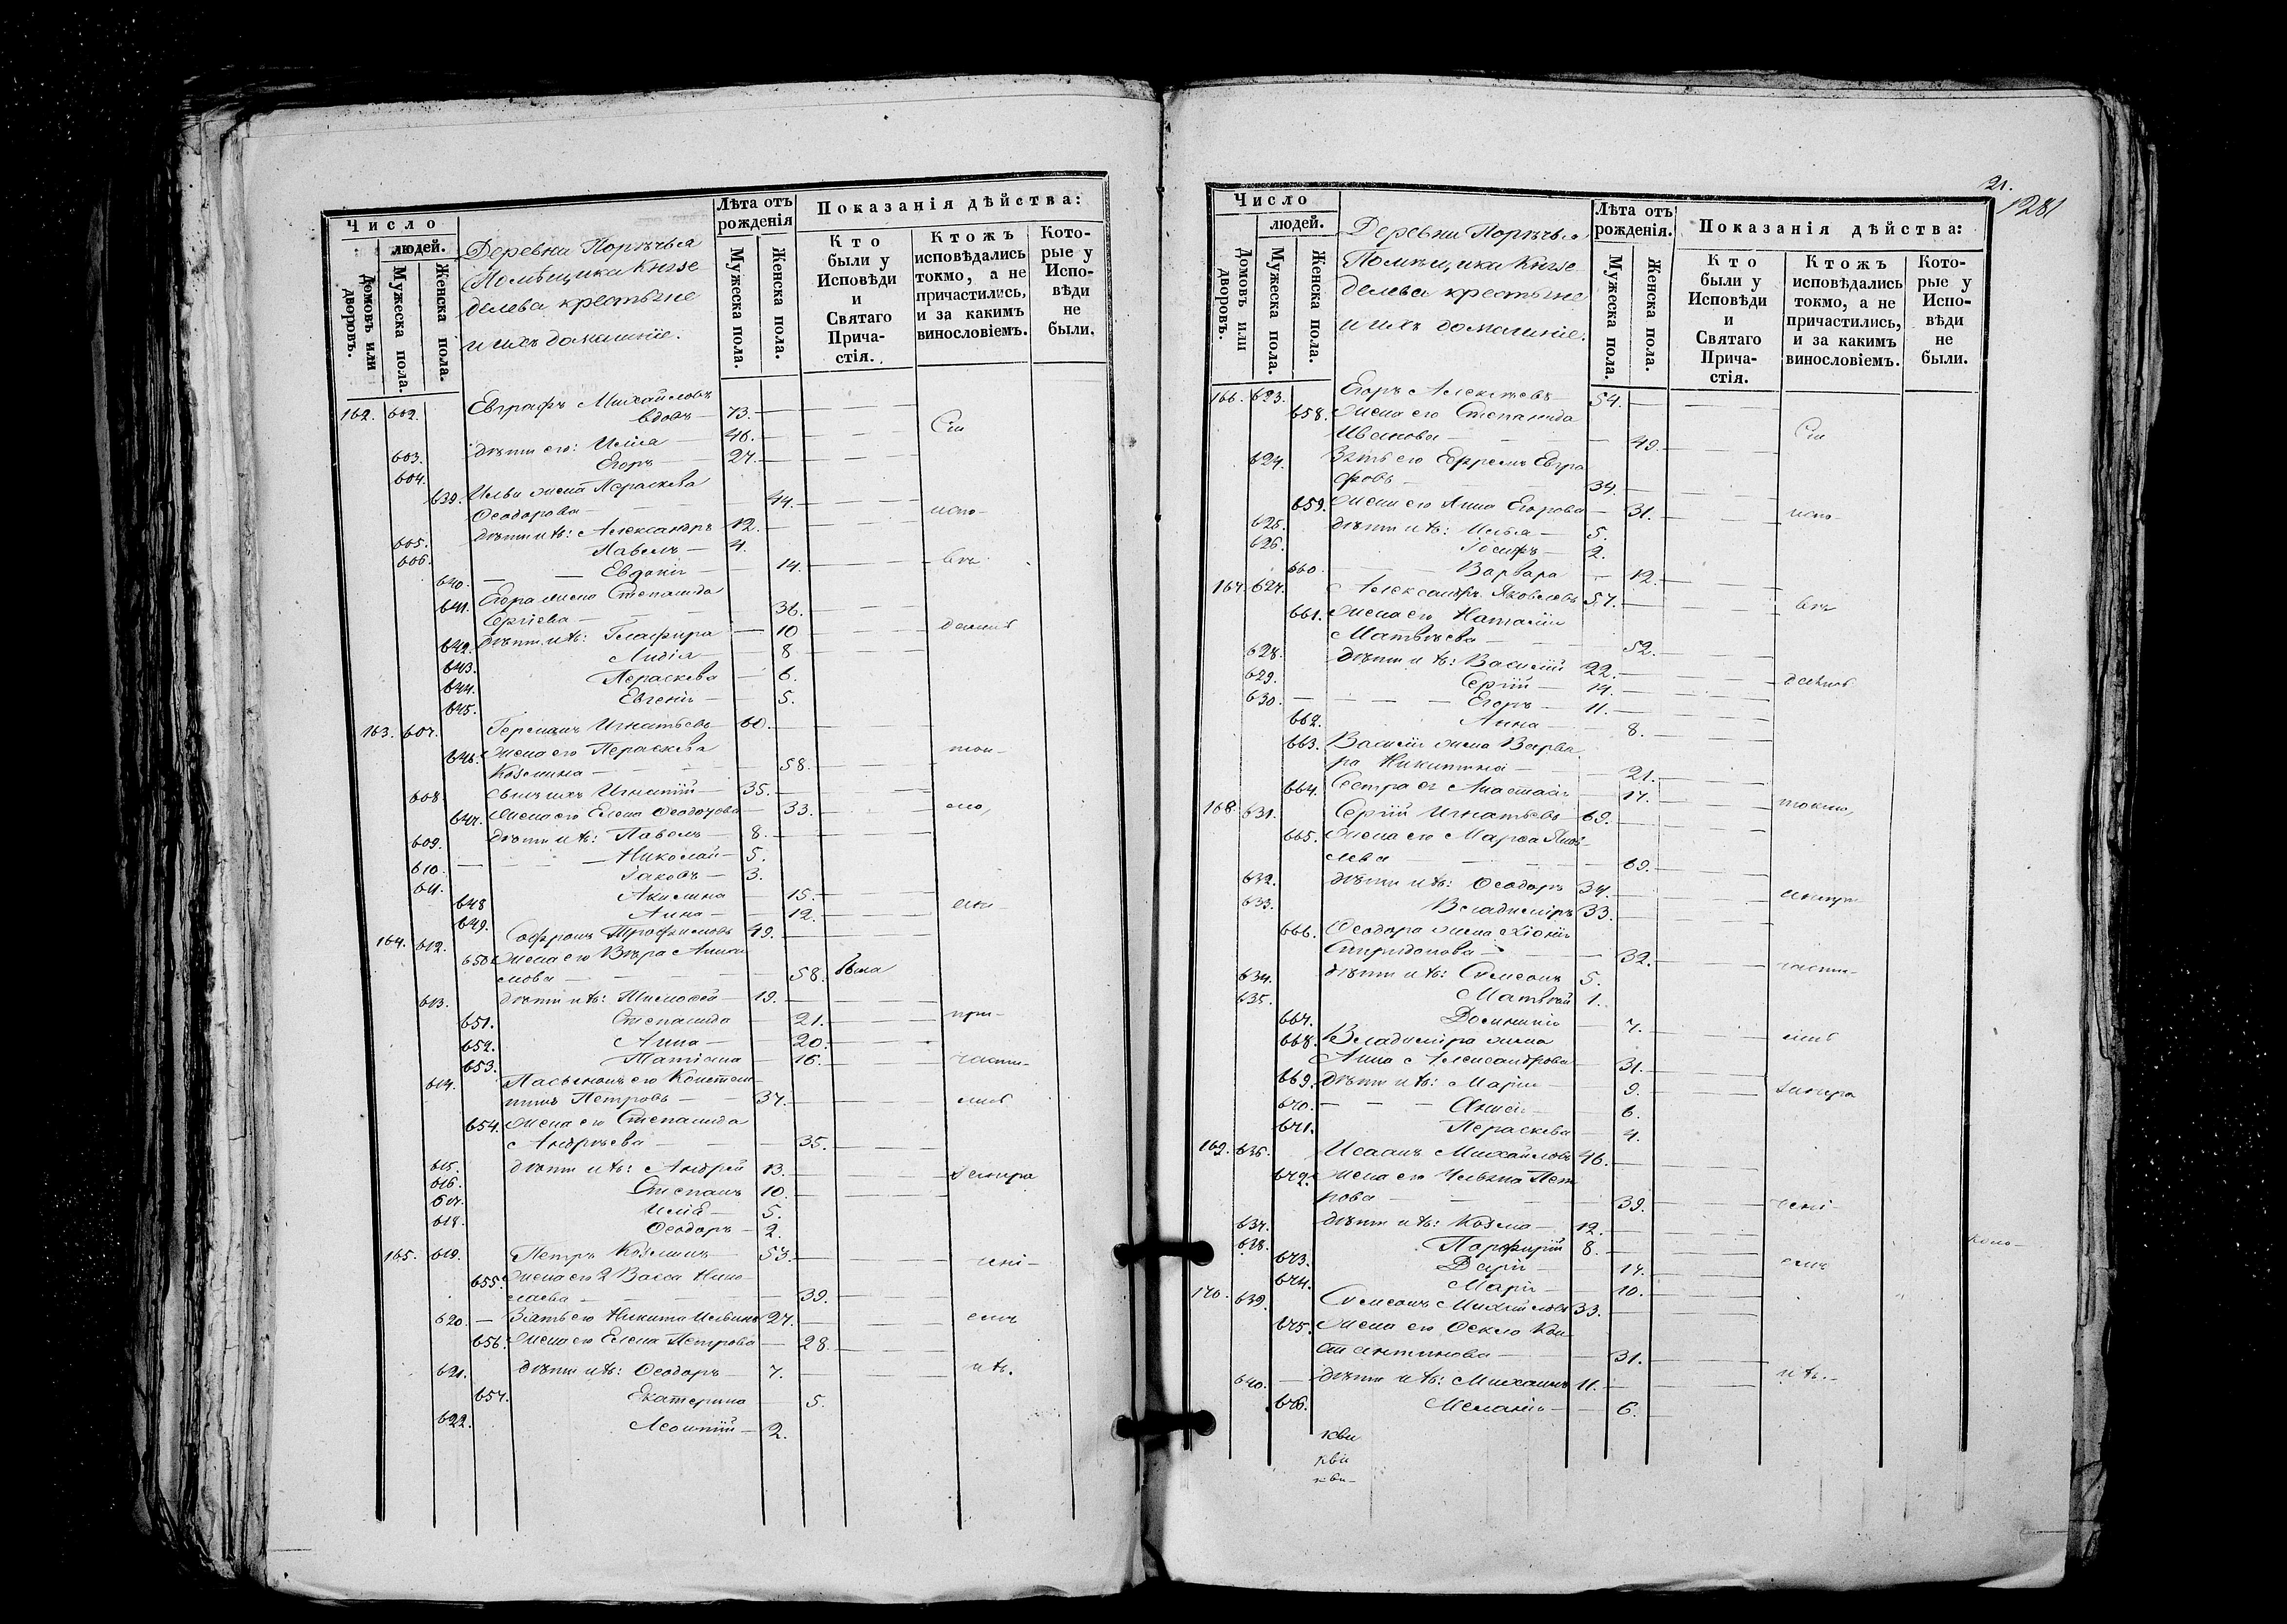 Число
людей.
Домовъ или дворовъ.
Мужеска пола.
Женска пола.
Деревни Порѣчья
Помѣщика Князе
делева крестьяне
и ихъ домашніе.
Лѣта отъ рожденія
Мужеска пола.
Женска пола.
Показанія дѣйства:
Кто были у Исповѣди и Святаго Прича-стія.
Ктожъ исповѣдались токмо, а не причастились, и за какимъ винословіемъ.
Кото-рые у Испо-вѣди не были.
162. 602. Евграфъ Михайловъ
вдовъ — 73.
603. дѣти его: Илія — 46.
604. Егоръ — 27.
639. Ильи жена Параскева
Ѳеодорова — 44.
605. дѣти ихъ: Александръ 12.
606. Павелъ — 4.
640. Евдокія — 14.
641. Егора жена Степанида
Сергіева — 36.
642. дѣти ихъ: Глафира — 10
643. Лидія — 8
644. Параскева — 6.
645. Евгенія — 5.
163. 607. Герасимъ Игнатьевъ 60.
646. Жена его Параскева
Козмина — 58.
608. Сынъ ихъ Игнатій — 35.
647. Жена его Елена Ѳеодорова — 33.
609. дѣти ихъ: Павелъ — 8.
610. Николай — 5.
611. Іаковъ — 3.
648 Акилина 15.
649. Анна — 12.
164. 612. Софронъ Трофимовъ 49.
650 Жена его Вѣра Аники
мова — 58.
613. дѣти ихъ: Тимоѳей — 19.
651. Степанида — 21.
652. Анна — 20.
653. Татіана — 16.
614. Пасынокъ его Констан
тинъ Петровъ — 37.
654. Жена его Степанида
Андреева — 35.
615. дѣти ихъ: Андрей 13.
616. Степанъ 10.
617. Илія — 5.
618. Ѳеодоръ — 2.
165. 619. Петръ Козминъ 53.
655. Жена его 2 Васса Нико
лаева — 39.
620. — Зять его Никита Ильинъ 27.
656. Жена его Елена Петрова — 28.
621. дѣти ихъ: Ѳеодоръ — 7.
657. Екатерина 5.
622. Леонтій — 2.
Сіи
испо-
вѣ
дались
ток-
мо,
при-
части-
лись
ихъ.
21.
1281
Число
людей.
Домовъ или дворовъ.
Мужеска пола.
Женска пола.
Деревни Порѣчья
Помѣщика Князе
делева крестьяне
и ихъ домашніе.
Лѣта отъ рожденія.
Мужеска пола.
Женска пола.
Показанія дѣйства:
Кто были у Исповѣди и Святаго Прича-стія.
Ктожъ исповѣдались токмо, а не причастились, и за какимъ винословіемъ.
Кото-рые у Испо-вѣди не были.
166. 623. Егоръ Алексѣевъ — 54.
658. Жена его Степанида
Иванова — 49.
624. Зять его Ефремъ Евгра
фовъ — 34.
659. Жена его Анна Егорова — 31.
625. дѣти ихъ: Илья — 5.
626. Іосифъ — 2.
660. Варвара — 12.
167. 627. Александръ Яковлевъ 57.
661. Жена его Наталія
Матвѣева — 52.
628. дѣти ихъ: Василій 22.
629. Сергій — 14.
630. Егоръ — 11.
662. Анна — 8.
663. Василія жена Варва
ра Никитина — 21.
664. Сестра ея Анастасія — 17.
168. 631. Сергій Игнатьевъ 69.
665. Жена его Марѳа Яков
лева — 69.
632. дѣти ихъ: Ѳеодоръ 34.
633. Владиміръ 33.
666. Ѳеодора жена Хіонія
Спиридонова — 32.
634. дѣти ихъ: Симеонъ 5.
635. Матвѣй 1.
667. Домникія — 7.
668. Владиміра жена
Анна Александрова 31.
669. дѣти ихъ: Марія — 9.
670. Анисія — 6.
671. Параскева 4.
169. 636. Исаакъ Михайловъ 46.
672. Жена его Ульяна Пет
рова — 39.
637. дѣти ихъ: Козма — 12.
638. Порфирій 8.
673. Дарія — 14.
674. Марія — 10.
170. 639. Симеонъ Михайловъ 33.
675. Жена его Ѳекла Кон
стантинова — 31.
640. дѣти ихъ: Михаилъ 11.
676. Меланія — 6.
Сіи
испо-
вѣ
дались
токмо,
части-
лись
ихъ.